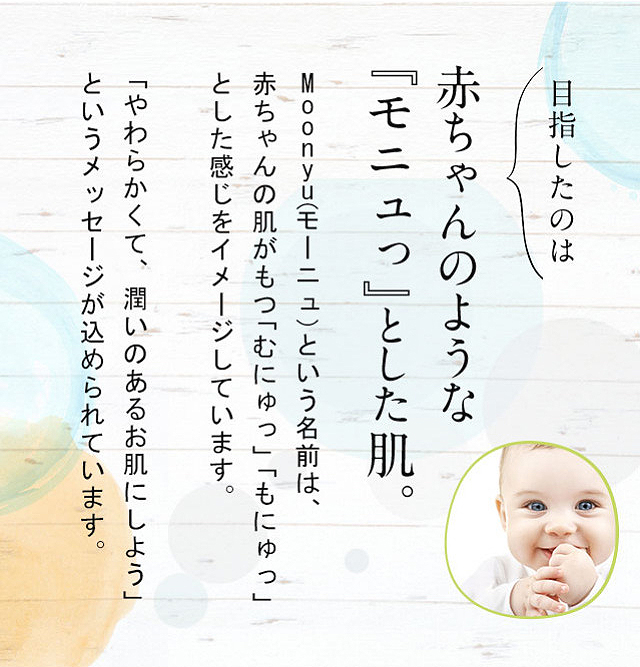 目指したのは
赤ちゃんのような
『モニュっ』とした肌。
Moonyu(モーニュ)という名前は、
赤ちゃんの肌がもつ「むにゅっ」「もにゅっ」
とした感じをイメージしています。
「やわらかくて、潤いのあるお肌にしよう」
というメッセージが込められています。